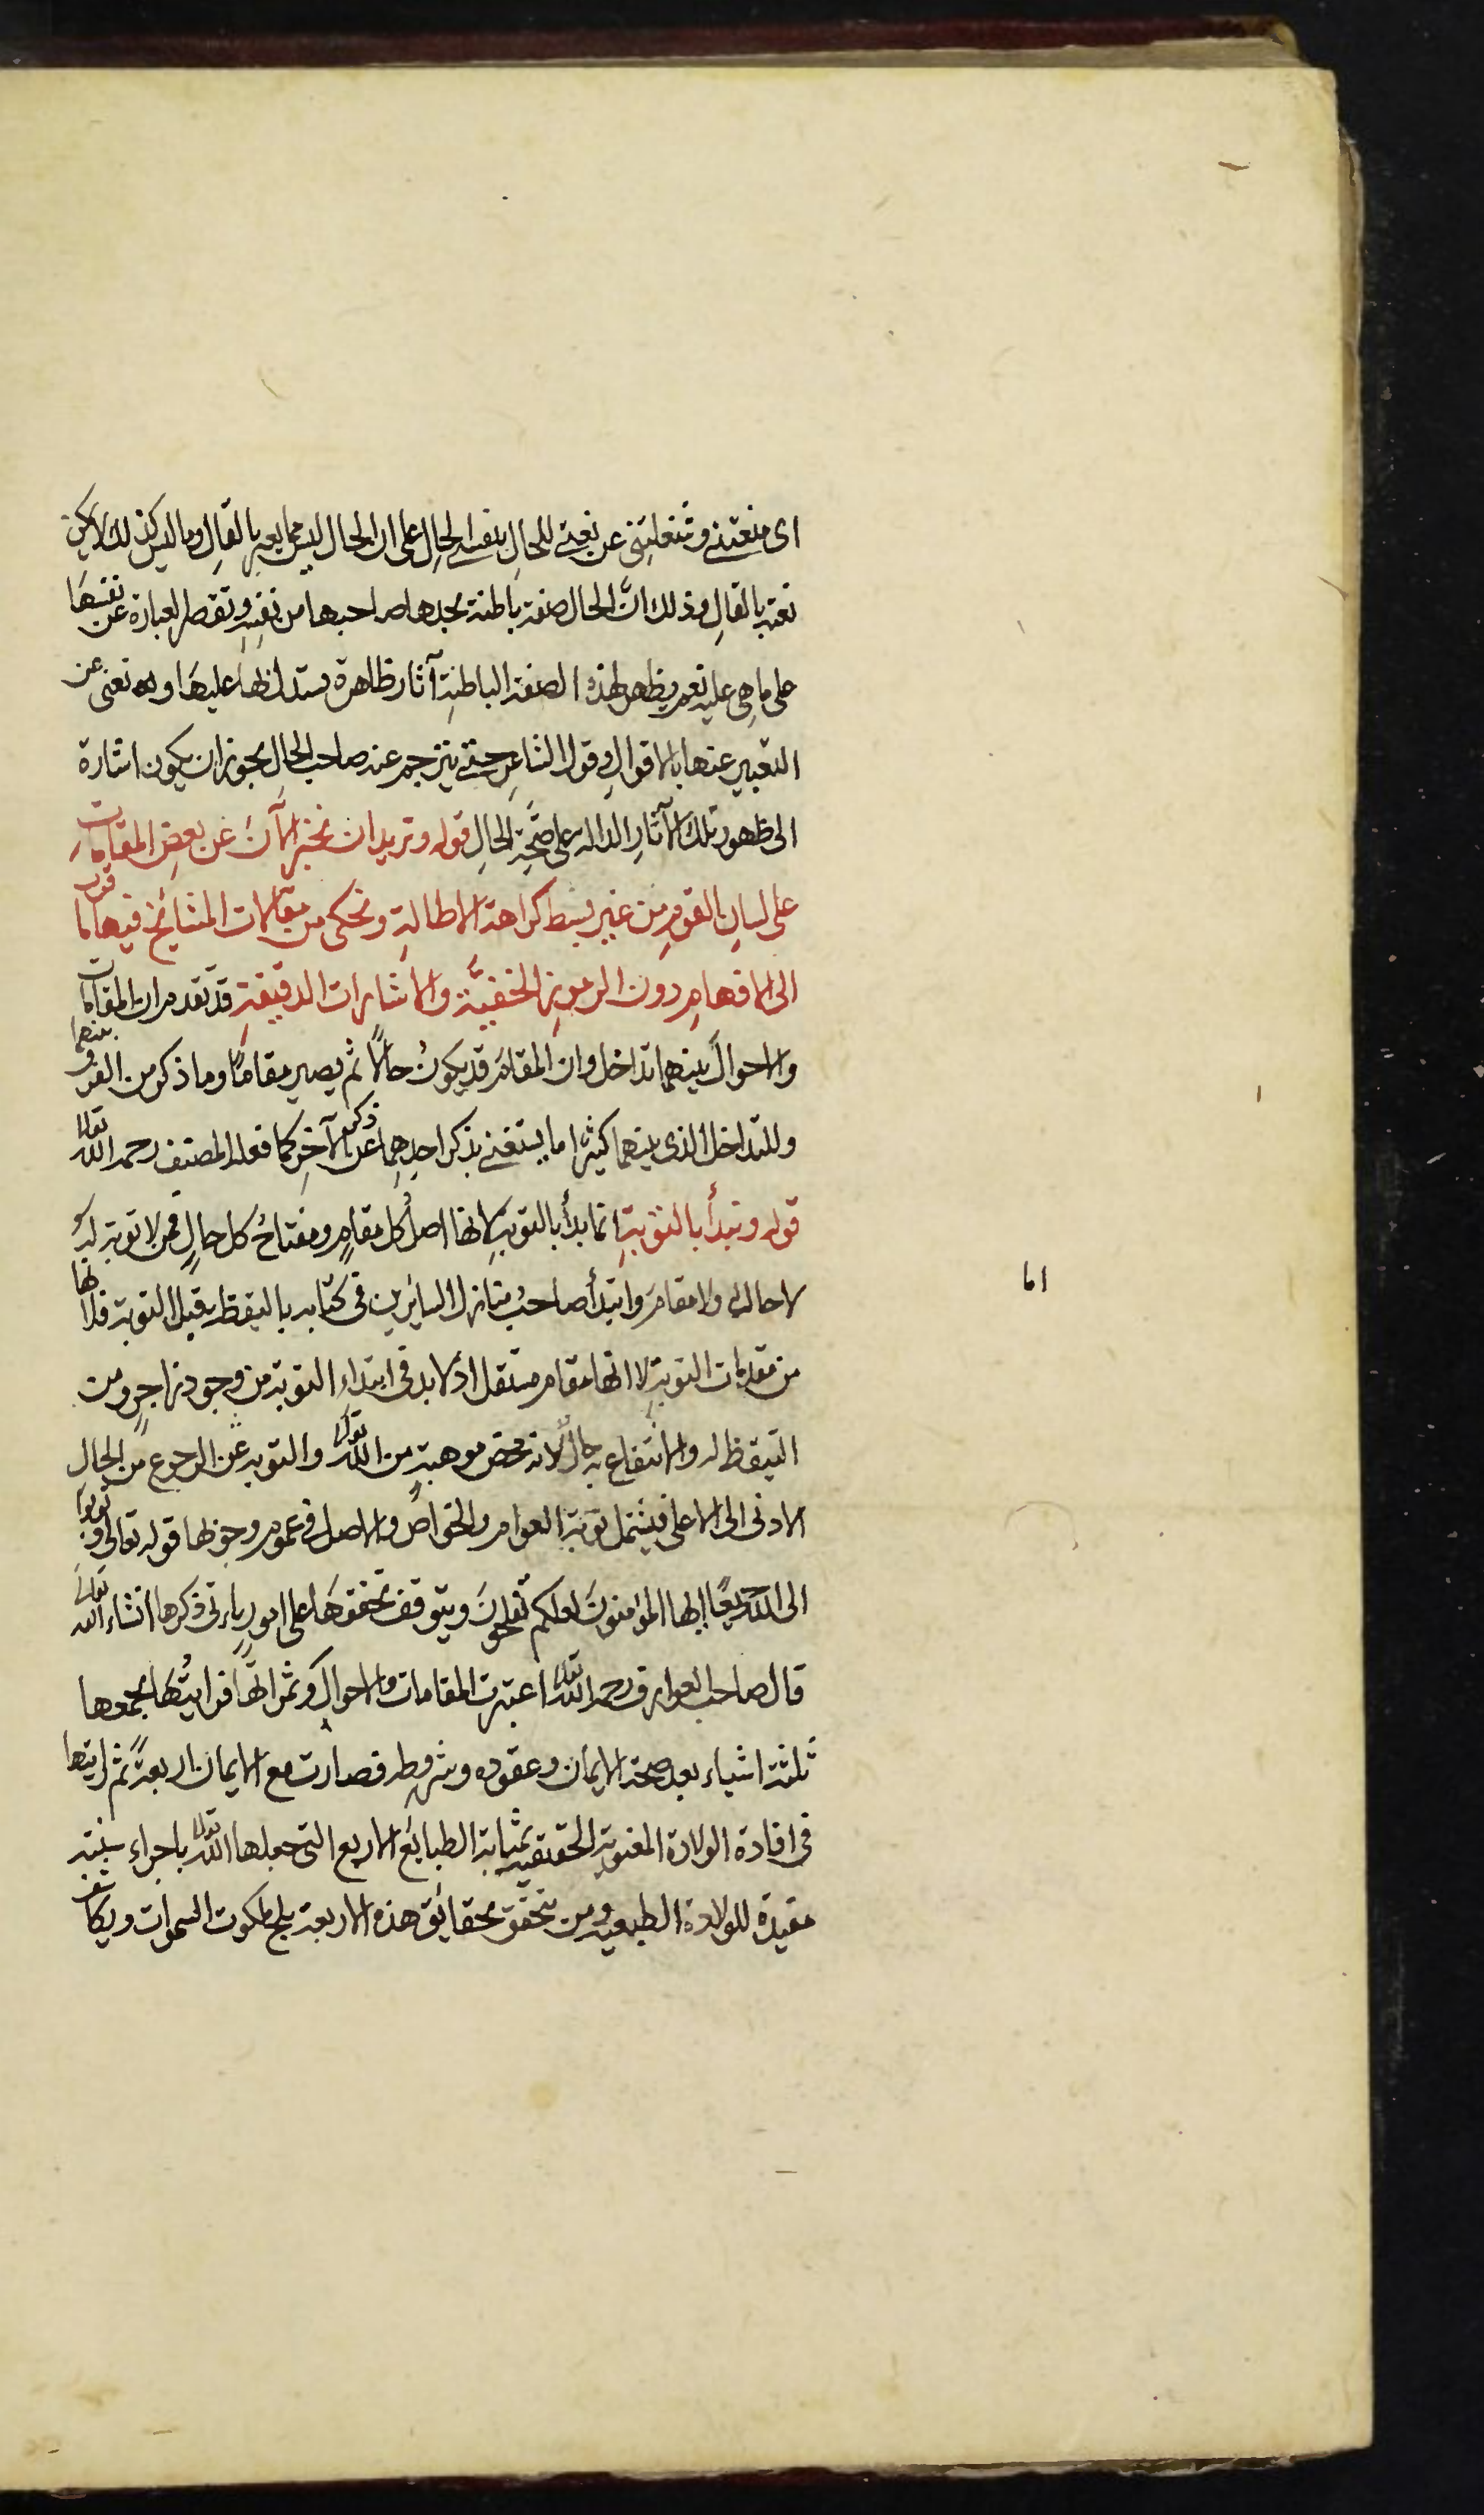 اى منعتنى وشغلتنى عن نعتى للحال بنفس الحال على ان الحال ليس مما يعبر بالقال وما ليس كذلك لا يمكن
نعته بالقالِ وذلك انّ الحال صفة باطنة يجدها صاحبها من نفسه وتقصر العبارة عن نفسها
على ما هى عليه نعم يظهر لهذه الصفة الباطنةِ آثار ظاهرة يستدل بها عليها وبه تغنى عن
التعبير عنها بالاقوالِ وقول الشاعرِ حتى يترجم عند صاحب الحالِ يجوز ان يكون اشارة
الى ظهور تلك الآثارِ الدالة على صحّةِ الحالِ قوله وتريد ان نخبر الآنَ عن بعضِ المقامات
على لسانِ القومِ من غير بسط كراهة الاطالةِ ونحكى من مقالات المشايخ فيها ما قرب
الى الافهامِ دون الرموزِ الخفيّة والاشارات الدقيقةِ قد تقدم ان المقامات
والاحوالَ بينهما تداخل وان المقامَ قد يكونُ حالاً ثم يصير مقامًا وما ذكر من الفرق بينهما
وللتداخل الذى بينهما كثيرا ما يستغنى بذكر احدِهِما عن ذكر الآخرِ كما فعله المصنف رحمه الله تعالى
قوله ونبدأ بالتوبةِ انما بدأ بالتوبةِ لانها اصلُ كل مقامٍ ومفتاحُ كل حالٍ فمن لا توبة له
لا حال له ولا مقامَ وابتدأ صاحبُ منازل السايرين فى كتابه باليقظة قبل التوبة فلانها
من مقدمات التوبةِ لا انها مقام مستقل اذ لا بد فى ابتداءِ التوبة من وجود زاجر ومن
التيقظ له والانتفاع به حالٌ لانه محض موهبةٍ من الله تعالى والتوبة عن الرجوع من الحال
الادنى الى الاعلى فيشمل توبة العوام والخواص والاصل فى عموم وجوبها قوله تعالى وتوبوا
الى الله جميعًا ايها المؤمنونَ لعلكم تفلحونَ ويتوقف تحققها على امورٍ يأتى ذكرها انشاء الله تعالى
قال صاحب العوارف رحمه الله تعالى اعتبرت المقامات والاحوال وثمراتها فرايتُها يجمعها
ثلثة اشياء بعد صحة الايمان وعقوده وشروطه فصارت مع الايمان اربعةً ثم رايتها
فى افادة الولادة المعنوية الحقيقية بمثابة الطبايع الاربع التى جعلها الله تعالى باجراء سنته
مفيدة للولادة الطبيعيه ومن تحقق بحقائق هذه الاربعة يلج ملكوت السموات ويكاشف